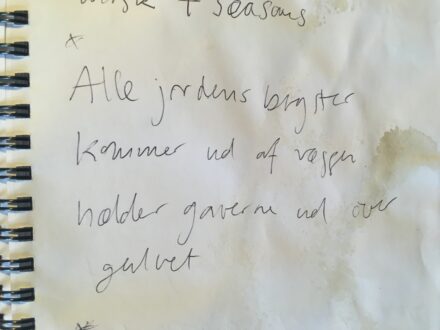 + seasons
*
Alle jordens bryster
kommer ud af væggen
hælder gaverne ud over
gulvet
*